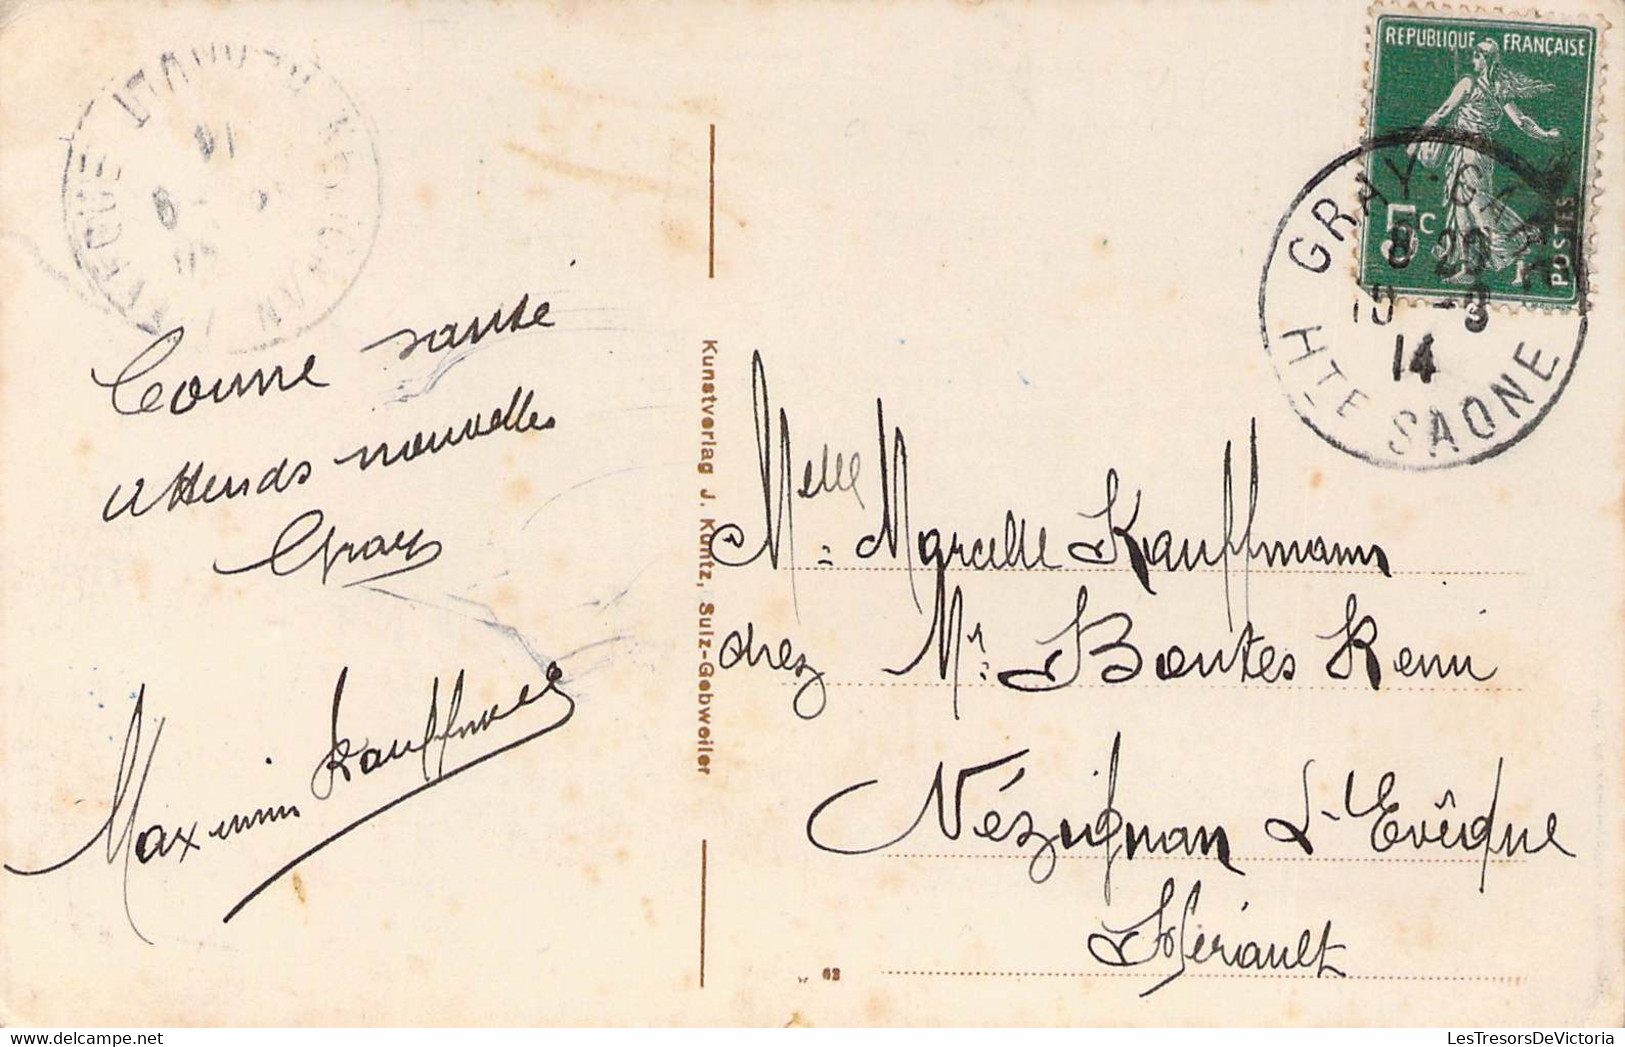 NÉZIGNAN L'EVÊQUE
14
REPUBLIQUE FRANÇAISE
5c
POSTES
GRAY-GARE
8 20
10 -3
14
HTE SAONE
Bonne santé
attends nouvelles
Gray
Maximin Kauffmann
Kunstverlag J. Kuntz, Sulz-Gebweiler
Melle Marcelle Kauffmann
chez Mr Bontes Remi
Nézignan L'Evêque
Hérault
63
LesTresorsDeVictoria.com